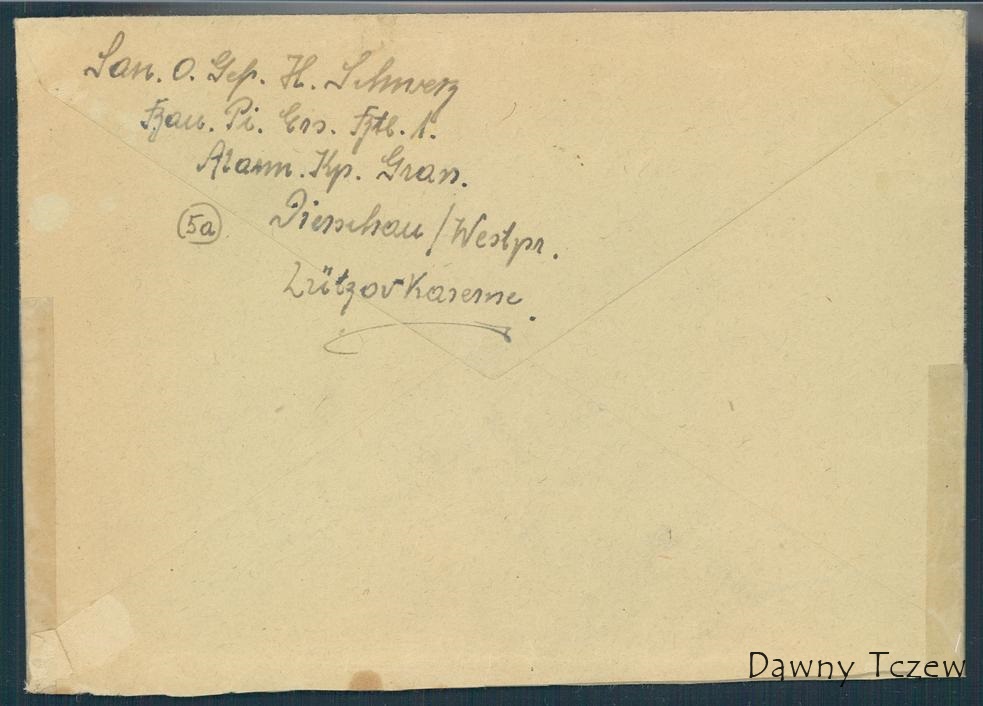 San. O. Gef. H. Schwerz
Bau. Pi. Ers. Btl. 1.
Alarm. Kp. Gran.
Dierschau / Westpr.
5a
Lützov Kaserne.
Dawny Tczew